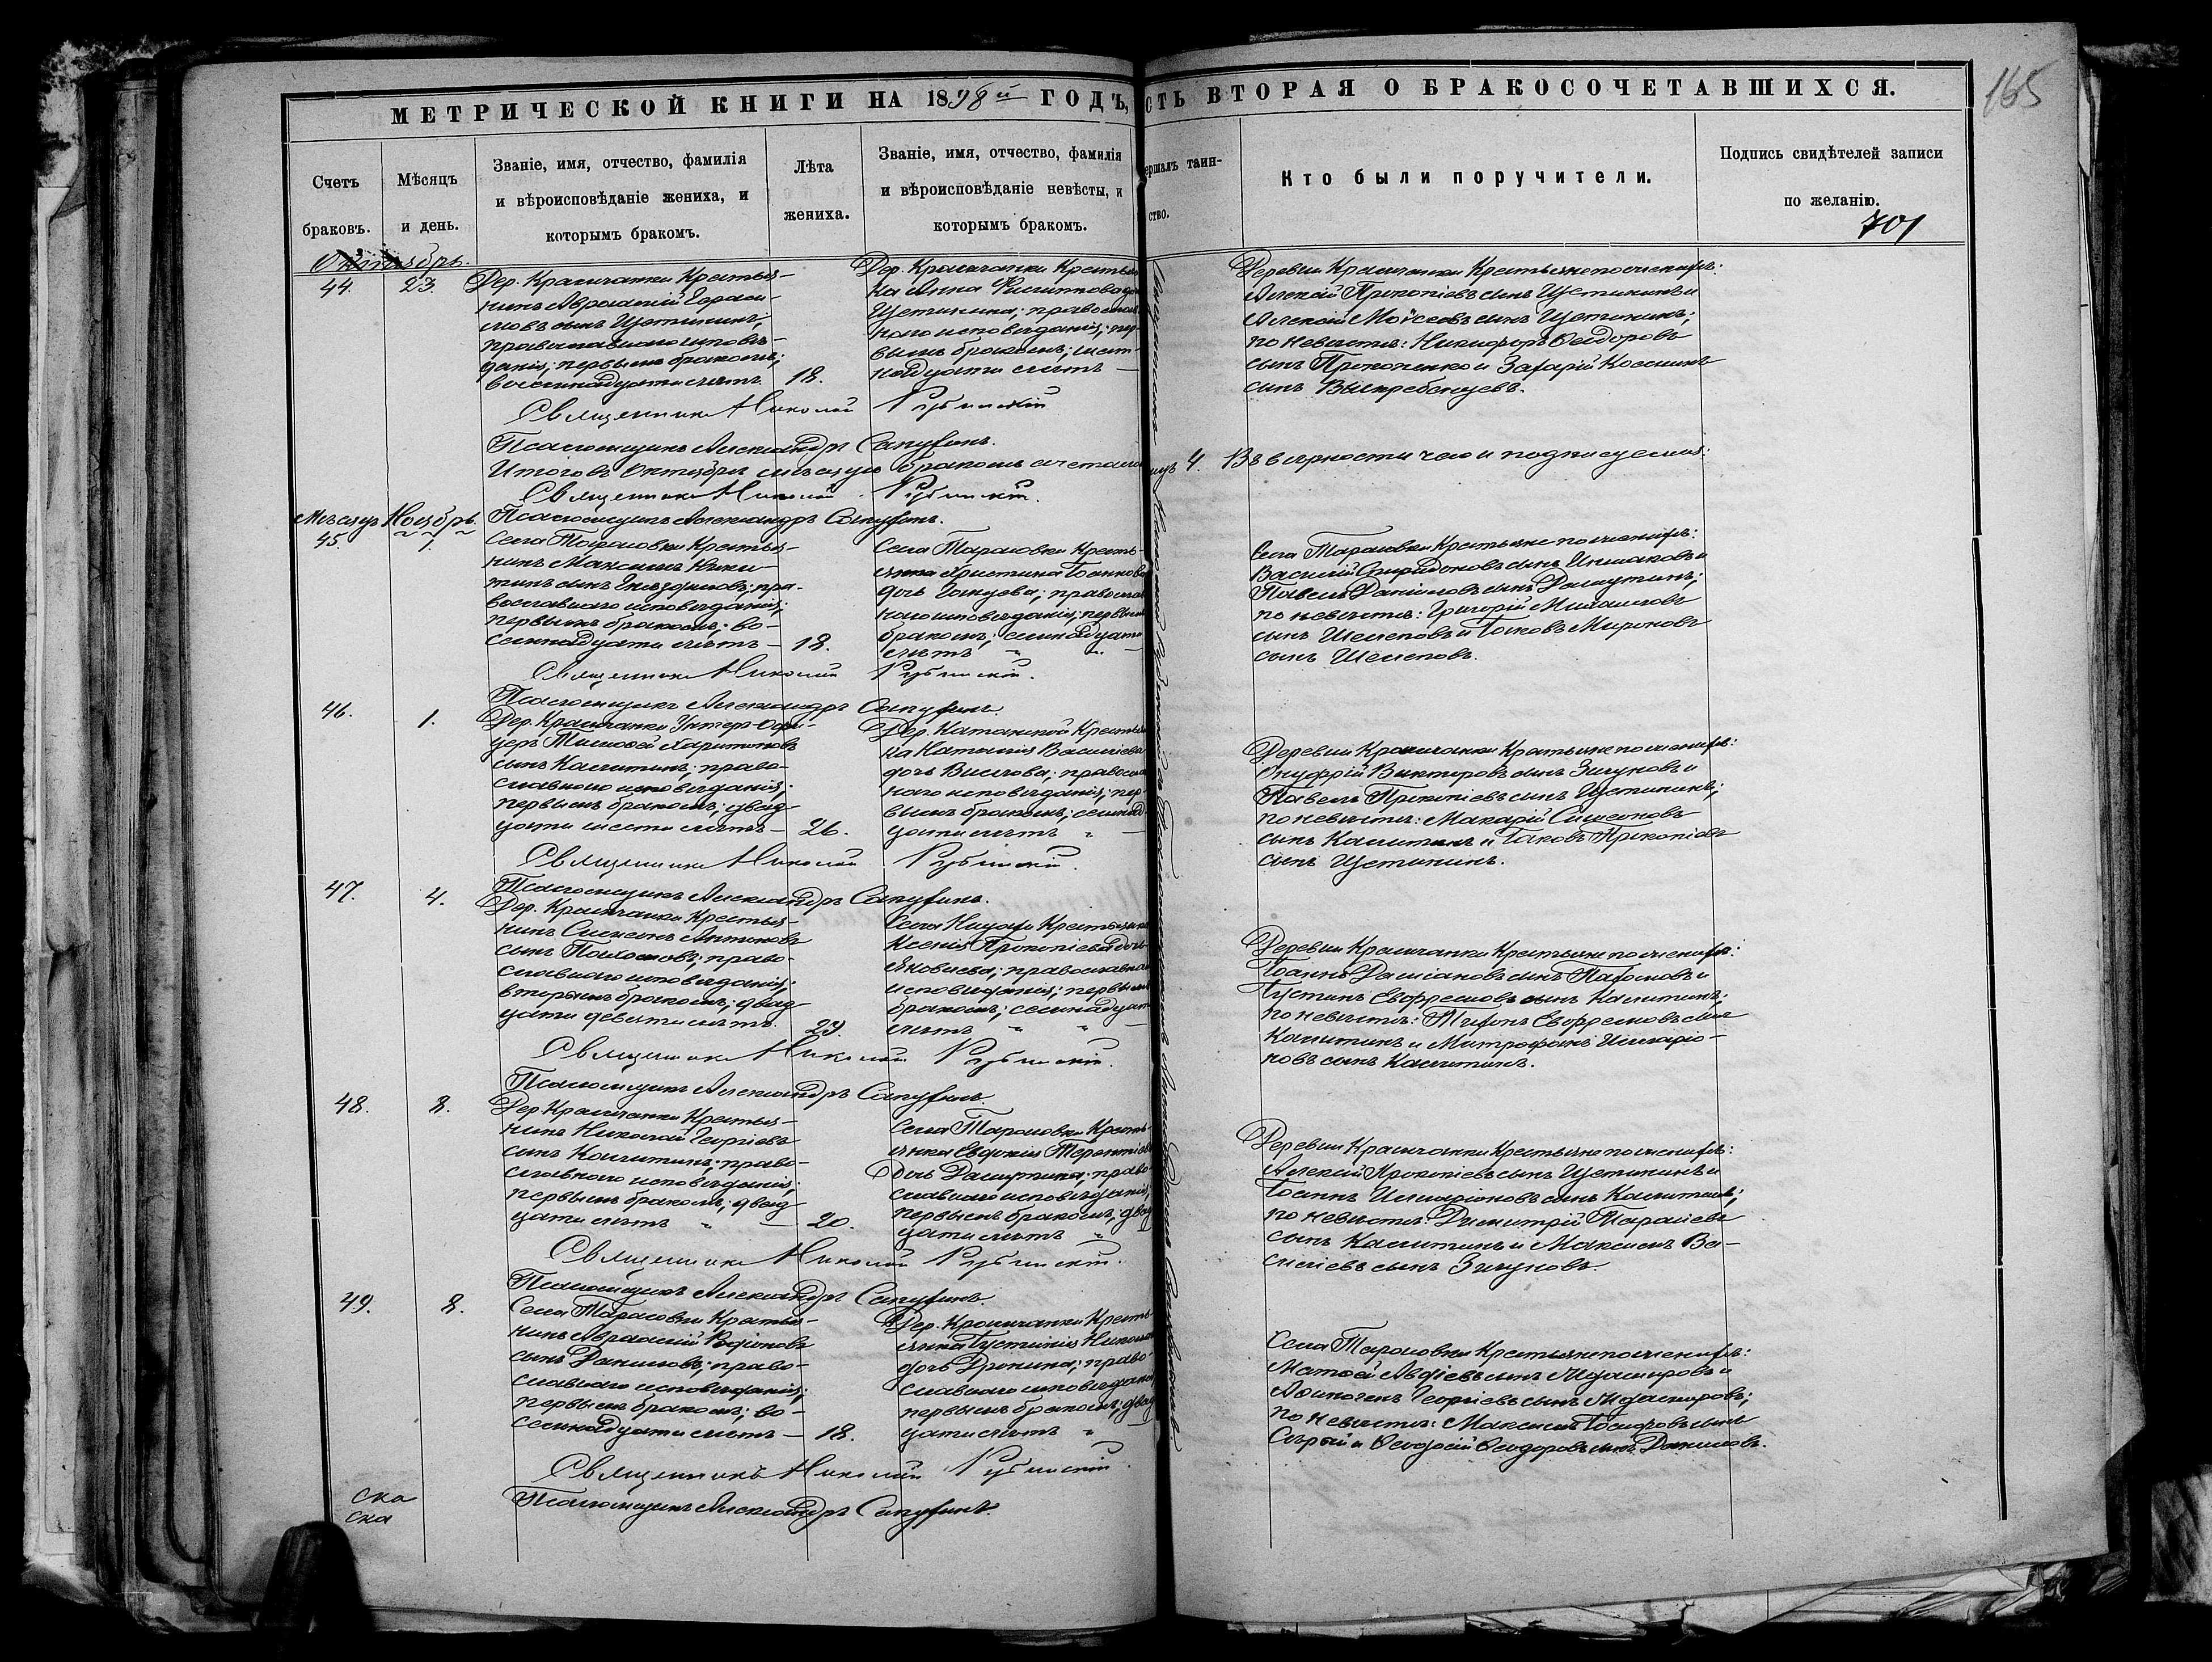 165
МЕТРИЧЕСКОЙ КНИГИ НА 1898й ГОДЪ,
СТЬ ВТОРАЯ О БРАКОСОЧЕТАВШИХСЯ.
Счетъ браковъ.
Мѣсяцъ и день.
Званіе, имя, отчество, фамилія
и вѣроисповѣданіе жениха, и
которымъ бракомъ.
Лѣта
жениха.
Званіе, имя, отчество, фамилія
и вѣроисповѣданіе невѣсты, и
которымъ бракомъ.
ершалъ таин-
ство.
Кто были поручители.
Подпись свидѣтелей записи
по желанію.
701
Октябрь.
44.
23.
Дер. Крашчанки Крестья-
нинъ Аврамій Гераси-
мовъ сынъ Щетининъ;
православнаго исповѣ-
данія; первымъ бракомъ;
восемнадцати лѣтъ
18.
Дер. Крашчанки Крестьян
ка Анна Филиппова до
Щетинина; православ
наго исповѣданія; пер-
вымъ бракомъ; шест-
надцати лѣтъ —
Деревни Крашчанки Крестьяне по женихѣ:
Алексій Прокопіевъ сынъ Щетининъ и
Алексій Моѵсеевъ сынъ Щетининъ;
по невѣстѣ: Никифоръ Ѳеодоровъ
сынъ Прокопенко и Захарій Косминъ
сынъ Выскребенцевъ.
Священникъ Николай Рубинскій
Псаломщикъ Александръ Сапухинъ.
Итого въ Октябрѣ мѣсяцѣ бракомъ сочетавши
ихъ 4. Въ вѣрности чего и подписуемся:
Священникъ Николай Рубинскій.
Псаломщикъ Александръ Сапухинъ.
Мѣсяцъ Ноябрь.
45.
1.
Села Тарасовки Крестья-
нинъ Максимъ Ники-
тинъ сынъ Гнездиловъ; пра-
вославнаго исповѣданія;
первымъ бракомъ; во-
семнадцати лѣтъ —
18.
Села Тарасовки Кресть-
янка Христина Іоаннова
дочь; православ
наго исповѣданія; первымъ
бракомъ; семнадцати
лѣтъ
Села Тарасовки Крестьяне по женихѣ:
Василій Спиридоновъ сынъ и
Павелъ Даніиловъ сынъ Дашутинъ;
по невѣстѣ: Григорій Михаиловъ
сынъ Шелеповъ и Іаковъ Мироновъ
сынъ Шелеповъ.
Священникъ Николай Рубинскій.
Псаломщикъ Александръ Сапухинъ.
46.
1.
Дер. Крашчанки Унтеръ-Офи-
церъ Тимоѳей Харитоновъ
сынъ Калитинъ; право-
славнаго исповѣданія;
первымъ бракомъ; двад-
цати шести лѣтъ —
26.
Дер. Крестьян
ка Наталія Васильева
дочь; православ
наго исповѣданія; пер-
вымъ бракомъ; семнад
цати лѣтъ
Деревни Крашчанки Крестьяне по женихѣ:
Онуфрій Викторовъ сынъ Зигуновъ и
Павелъ Прокопіевъ сынъ Щетининъ;
по невѣстѣ: Макарій Симеоновъ
сынъ Калитинъ и Іаковъ Прокопіевъ
сынъ Щетининъ.
Священникъ Николай Рубинскій.
Псаломщикъ Александръ Сапухинъ.
47.
4.
Дер. Крашчанки Крестья-
нинъ Симеонъ Антоновъ
сынъ Пахомовъ; право-
славнаго исповѣданія;
вторымъ бракомъ; двад-
цати девяти лѣтъ.
29.
Села Крестьянка
Ксенія Прокопіева дочь
Яковлева; православна
исповѣданія; первымъ
бракомъ; семнадцати
лѣтъ
Деревни Крашчанки Крестьяне по женихѣ:
Іоаннъ Даміановъ сынъ Пахомовъ и
Іустинъ Евфремовъ сынъ Калитинъ;
по невѣстѣ: Евфремовъ сынъ
Калитинъ и Митрофанъ Иларіо-
новъ сынъ Калитинъ.
Священникъ Николай Рубинскій.
Псаломщикъ Александръ Сапухинъ.
48.
8.
Дер. Крашчанки Крестья-
нинъ Николай Георгіевъ
сынъ Калитинъ; право-
славнаго исповѣданія;
первымъ бракомъ; двад-
цати лѣтъ —
20.
Села Тарасовки Кресть-
янка Евдокія Терентіева
дочь Дашутина; право-
славнаго исповѣданія;
первымъ бракомъ; двад
цати лѣтъ
Деревни Крашчанки Крестьяне по женихѣ:
Алексій Прокопіевъ сынъ Щетининъ и
Іоаннъ Иларіоновъ сынъ Калитинъ;
по невѣстѣ: Димитрій Тарасіевъ
сынъ Калитинъ и Максимъ Ва-
силіевъ сынъ Зигуновъ.
Священникъ Николай Рубинскій.
Псаломщикъ Александръ Сапухинъ.
49.
8.
Села Тарасовки Крестья-
нинъ Аврамій Родіоновъ
сынъ Даниловъ; право-
славнаго исповѣданія;
первымъ бракомъ; во-
семнадцати лѣтъ —
18.
Дер. Крашчанки Кресть-
янка Іустинія Никола
дочь Дронина; право-
славнаго исповѣданія
первымъ бракомъ; двад
цати лѣтъ
Села Тарасовки Крестьяне по женихѣ:
Матѳей Авдіевъ сынъ и
Аѳиногенъ Георгіевъ сынъ;
по невѣстѣ: Максимъ Іосифовъ сынъ
Сѣрый и Ѳеодосій Ѳеодоровъ сынъ Даниловъ.
Священникъ Николай Рубинскій.
Псаломщикъ Александръ Сапухинъ.
ска
ска